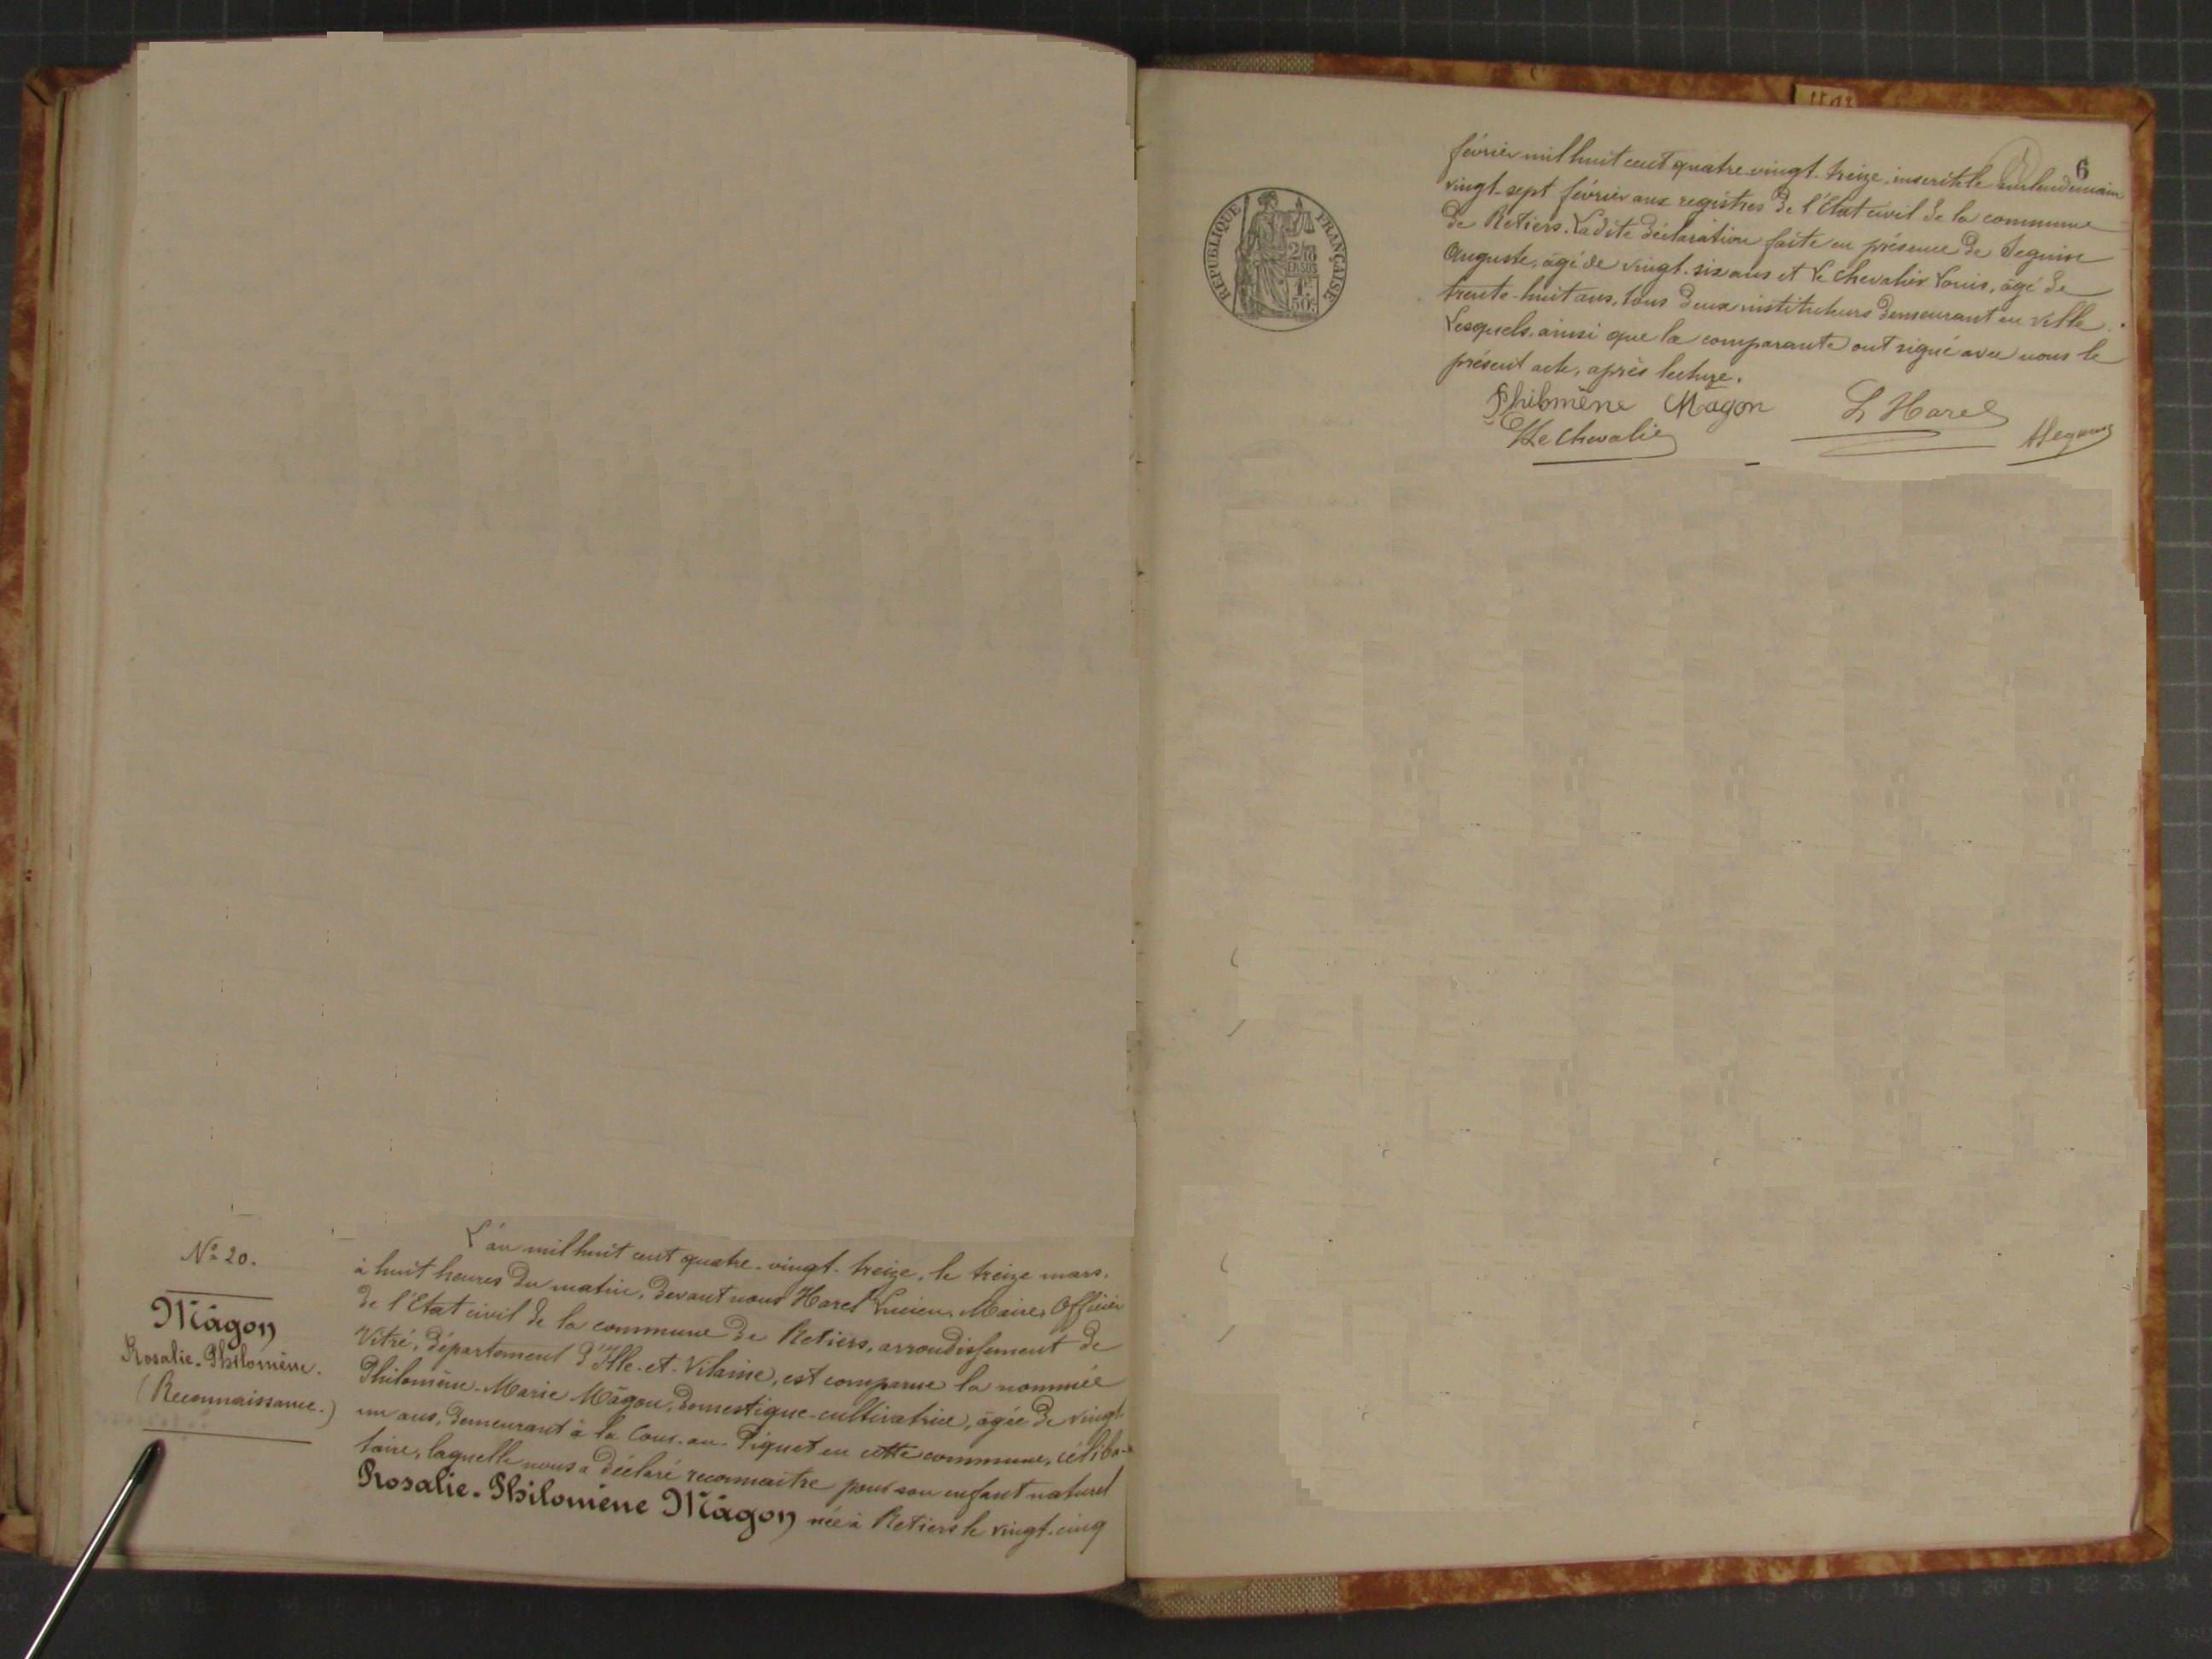 Nº 20.
Mâgon
Rosalie-Philomène.
(Reconnaissance.)
L'an mil huit cent quatre-vingt-treize, le treize mars,
à huit heures du matin, devant nous Harel Lucien, Maire, Officier
de l'Etat civil de la commune de Retiers, arrondissement de
Vitré, département d'Ille-et-Vilaine, est comparue la nommée
Philomène-Marie Mâgon, domestique-cultivatrice, âgée de vingt-
un ans, demeurant à la Cour-au-Piquet en cette commune, céliba-
taire, laquelle nous a déclaré reconnaitre pour son enfant naturel
Rosalie-Philomène Mâgon née à Retiers le vingt-cinq
6
février mil huit cent quatre-vingt-treize, inscrit le surlendemain
vingt-sept février aux registres de l'Etat civil de la commune
de Retiers. Ladite déclaration faite en présence de Seguin
Auguste, âgé de vingt-six ans et Le Chevalier Louis, âgé de
trente-huit ans, tous deux instituteurs demeurant en ville.
Lesquels, ainsi que la comparante ont signé avec nous le
présent acte, après lecture.
Philomène Magon L Harel
Le Chevalier
RÉPUBLIQUE FRANÇAISE
2/10
EN SUS
1F
50c